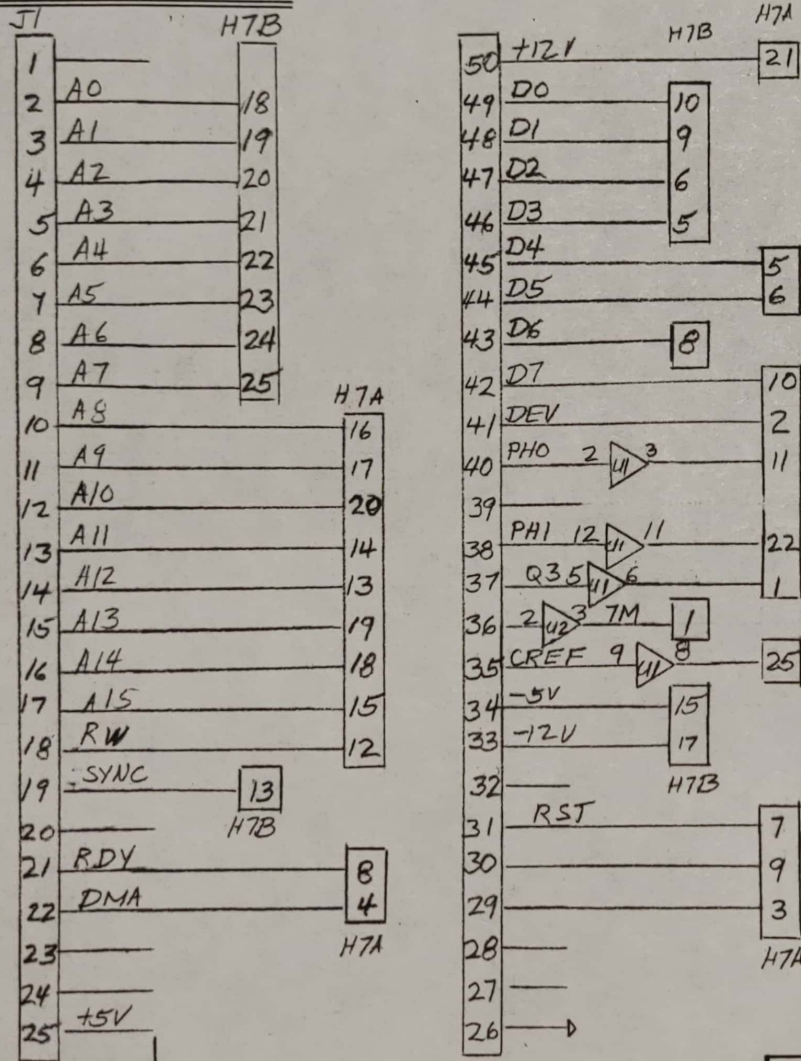 J1 H7B
1
2 A0 18
3 A1 19
4 A2 20
5 A3 21
6 A4 22
7 A5 23
8 A6 24
9 A7 25
H7A
10 A8 16
11 A9 17
12 A10 20
13 A11 14
14 A12 13
15 A13 19
16 A14 18
17 A15 15
18 RW 12
19 SYNC 13
H7B
20
21 RDY 8
22 DMA 4
H7A
23
24
25 +5V
H7B H7A
50 +12V 21
49 D0 10
48 D1 9
47 D2 6
46 D3 5
45 D4 5
44 D5 6
43 D6 8
42 D7 10
41 DEV 2
40 PH0 2 U1 3 11
39
38 PH1 12 U1 11 22
37 Q3 5 U1 6 1
36 2 U2 3 7M 1
35 CREF 9 U1 8 25
34 -5V 15
33 -12V 17
H7B
32
31 RST 7
30 9
29 3
H7A
28
27
26